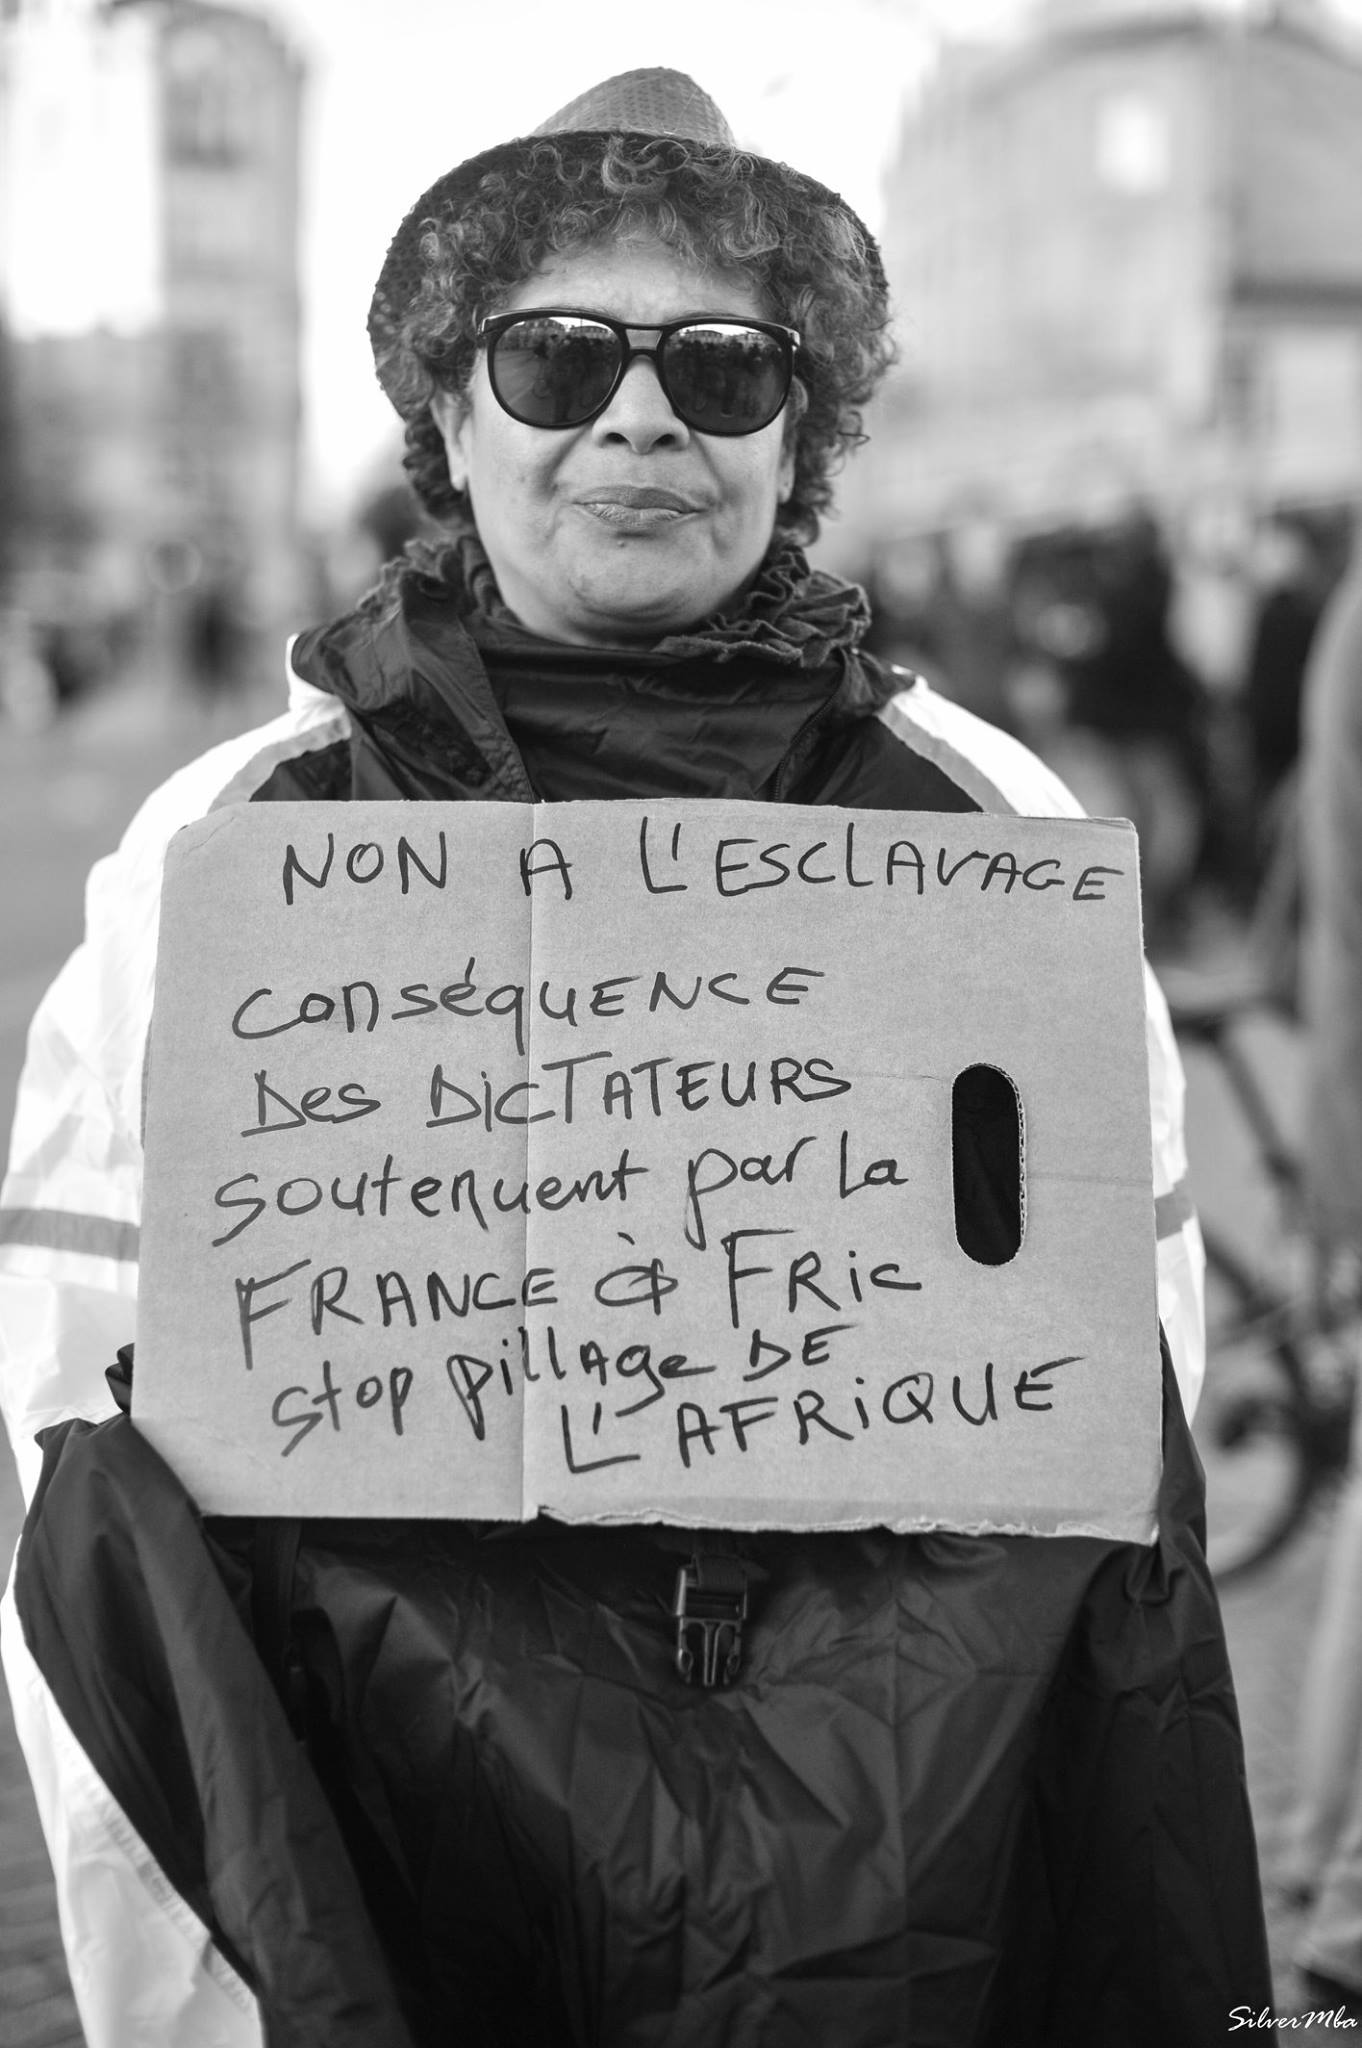 NON A L'ESCLAVAGE
conséquence
Des DICTATEURS
soutenuent par la
FRANCE à FRic
stop pillage DE
L'AFRIQUE
SilverMba